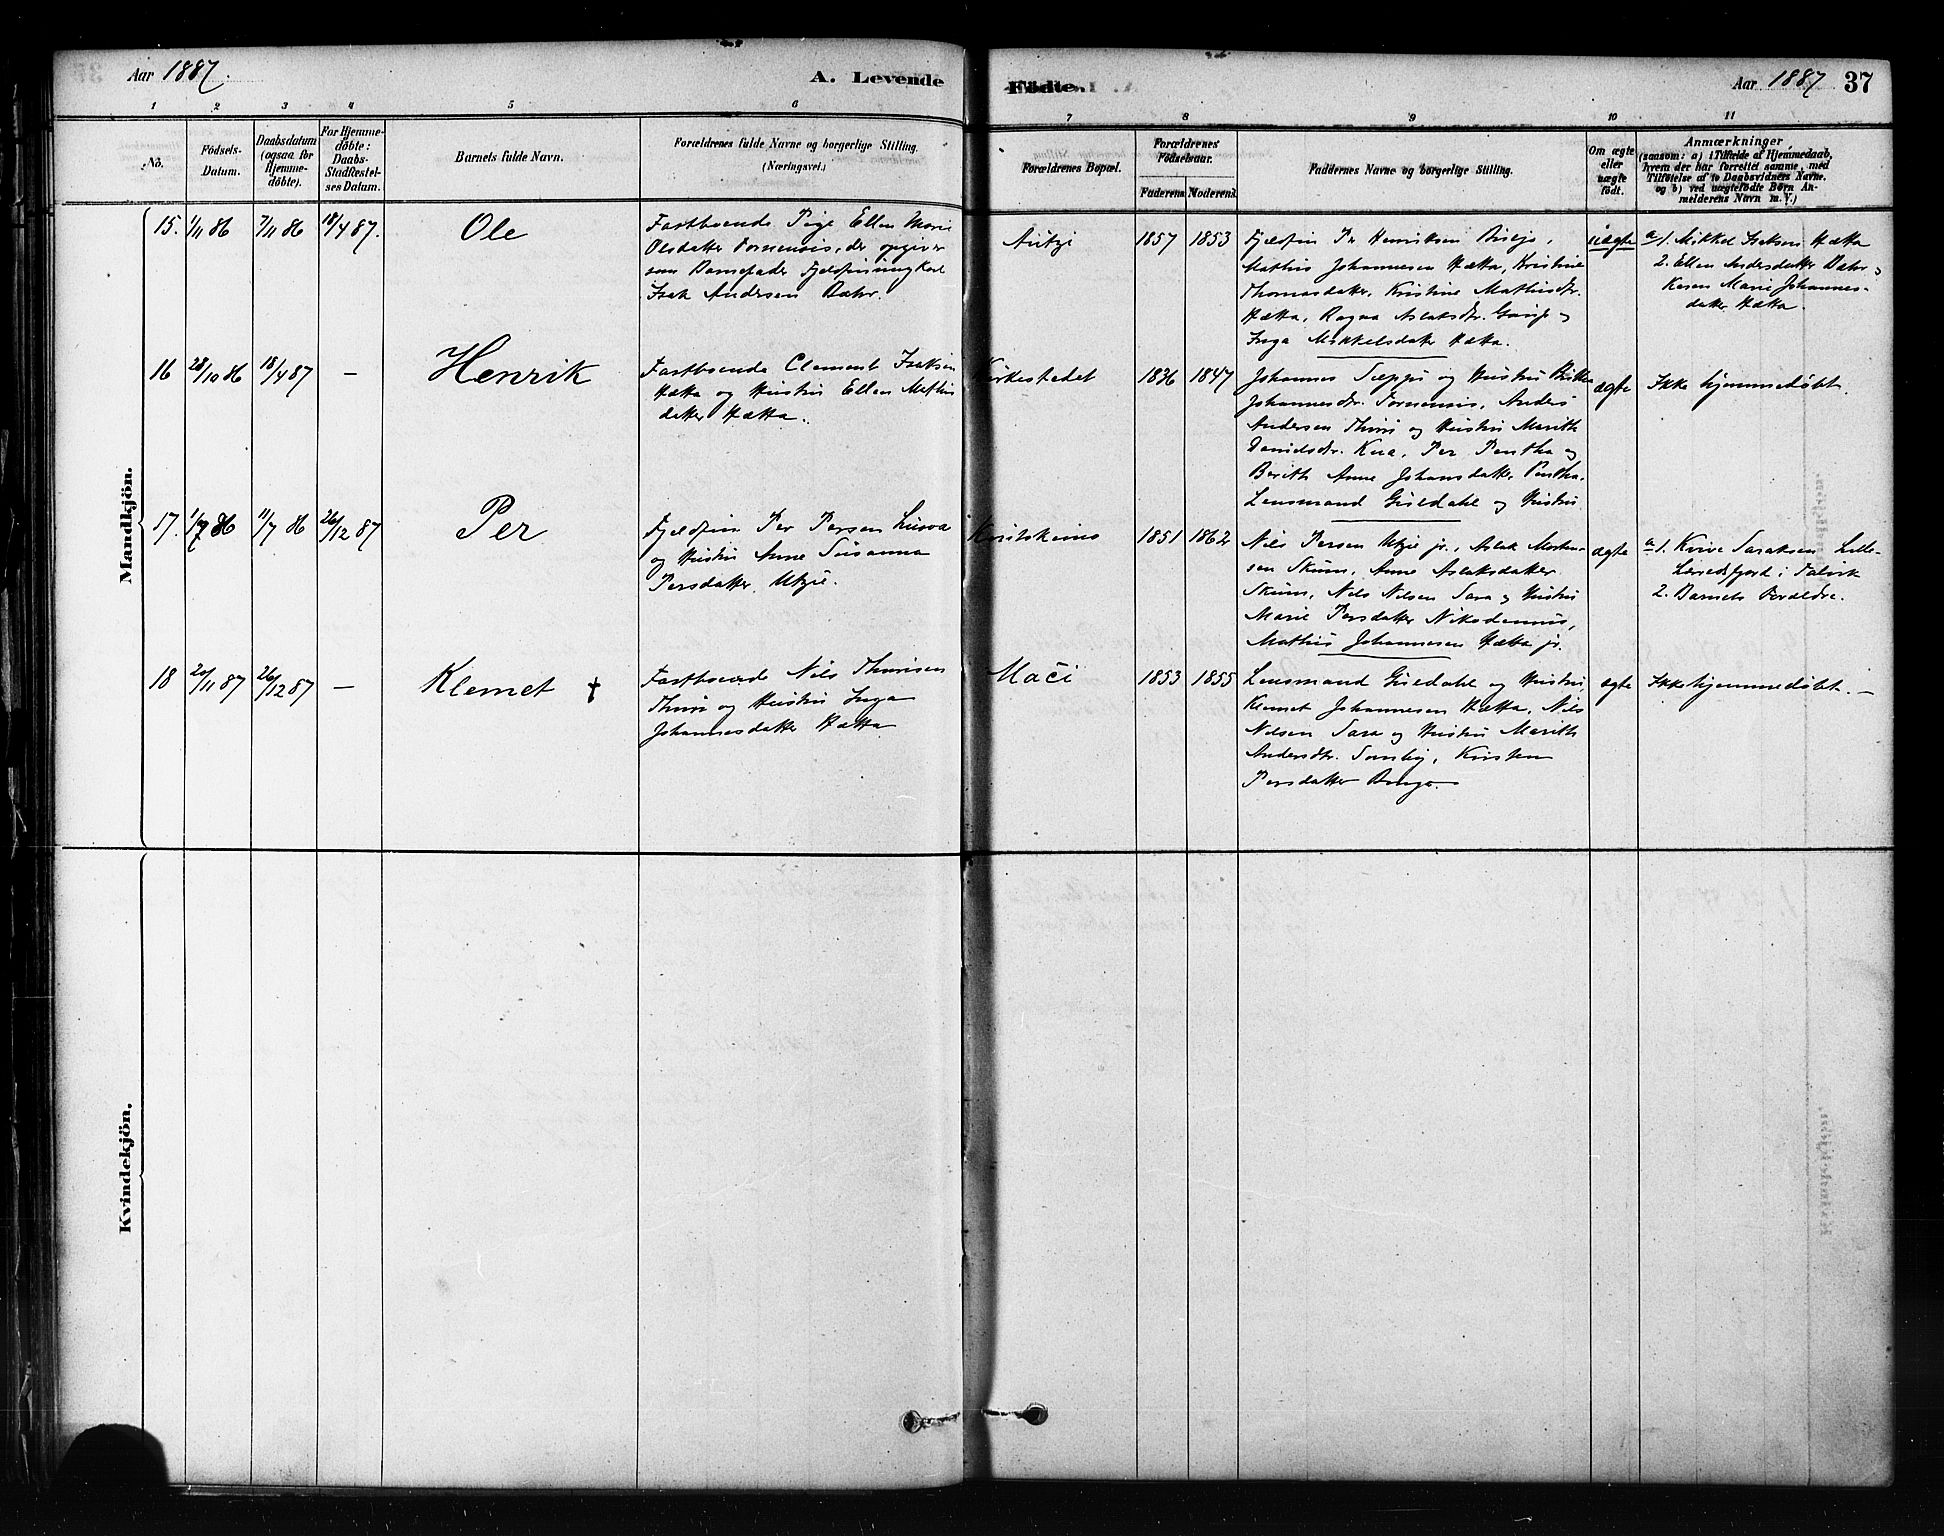 Aar 1887.
A. Levende
Födte.
Aar 1887
37
1 2 3 4 5 6 7 8 9 10 11
No.
Födsels-
Datum.
Daabsdatum
(ogsaa for
Hjemme-
döbte).
For Hjemme-
döbte:
Daabs-
Stadfæstel-
ses Datum.
Barnets fulde Navn.
Forældrenes fulde Navne og borgerlige Stilling.
(Næringsvei.)
Forældrenes Bopæl.
Forældrenes
Födselsaar.
Faderens. Moderens.
Faddernes Navne og borgerlige Stilling.
Om ægte
eller
uægte
födt.
Anmærkninger
(saasom: a) i Tilfælde af Hjemmedaab,
hvem der har forrettet samme, med
Tilföielse af to Daabsvidners Navne,
og b) ved uægtefödte Börn An-
melderens Navn m. V.)
Mandkjön.
15. 1/11 86 7/11 86 18/4 87. Ole
Fastboende Pige Ellen Marie
Olsdatter Fornensis, der opgiver
som Barnefader Fjeldfinungkarl
Isak Andersen Bahr.
Autzi 1857 1853
Fjeldfin Per Henriksen
Mathis Johannesen Hætta, Kristine
Thomasdatter, Kristine Mathisdtr.
Hætta, Ragna Aslaksdtr. Gaup og
Inga Mikkelsdatter Hætta.
uægte
a/1. Mikkel Isaksen Hætta
2. Ellen Andersdatter Bahr og
Karen Marie Johannes-
datter Hætta.
16 28/10 86 18/4 87 — Henrik
Fastboende Clement Isaksen
Hætta og Hustru Ellen Mathis
datter Hætta.
Kirkestedet 1836 1847
Johannes og Hustru
Johannesdtr. Fornensis, Anders
Andersen Thuri og Hustru Marith
Danielsdtr. Kua, Per Pentha og
Berith Anne Johansdatter Pentha.
Lensmand Guldahl og Hustru
ægte Ikke hjemmedøbt.
17. 1/7 86 11/7 86 26/12 87 Per
Fjeldfin Per Persen
og Hustru Anne Susanna
Persdatter Utzie.
1851 1862
Nils Persen Utzie jr., Aslak Morten-
sen Skum, Anne Aslaksdatter
Skum, Nils Nilsen Sara og Hustru
Marie Persdatter Nikodemus,
Mathis Johannesen Hætta jr.
ægte
a/1. Saraksen Lille-
i Talvik
2. Barnets Forældre.
18 20/11 87 26/12 87 — Klemet †
Fastboende Nils Thurisen
Thuri og Hustru Inga
Johannesdatter Hætta
Mači 1853 1855
Lensmand Guldahl og Hustru,
Klemet Johannesen Hætta, Nils
Nilsen Sara og Hustru Marith
Andersdtr. Somby, Kirsten
Persdatter
ægte Ikke hjemmedøbt. —
Kvindekjön.